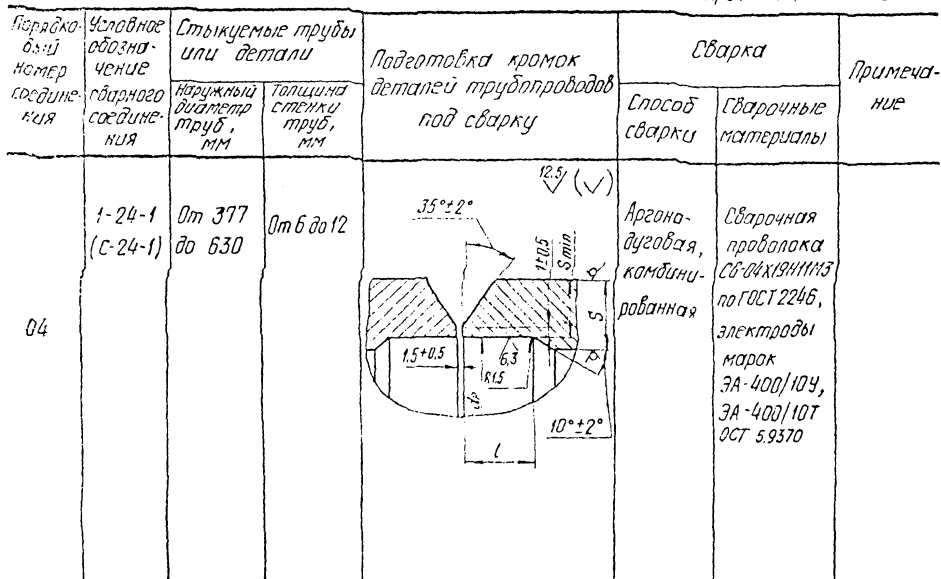 Порядко-
вый
номер
соедине-
ния
Условное
обозна-
чение
сварного
соедине-
ния
Стыкуемые трубы
или детали
Наружный
диаметр
труб,
мм
Толщина
стенки
труб,
мм
Подготовка кромок
деталей трубопроводов
под сварку
Сварка
Способ
сварки
Сварочные
материалы
Примеча-
ние
04
1-24-1
(С-24-1)
От 377
до 630
От 6 до 12
12,5 (√)
35°±2°
1±0,5
S min
S
1,5+0,5
6,3
R1,5
dр
10°±2°
l
Аргоно-
дуговая,
комбини-
рованная
Сварочная
проволока
Св-04Х19Н11М3
по ГОСТ 2246,
электроды
марок
ЭА-400/10У,
ЭА-400/10Т
ОСТ 5.9370